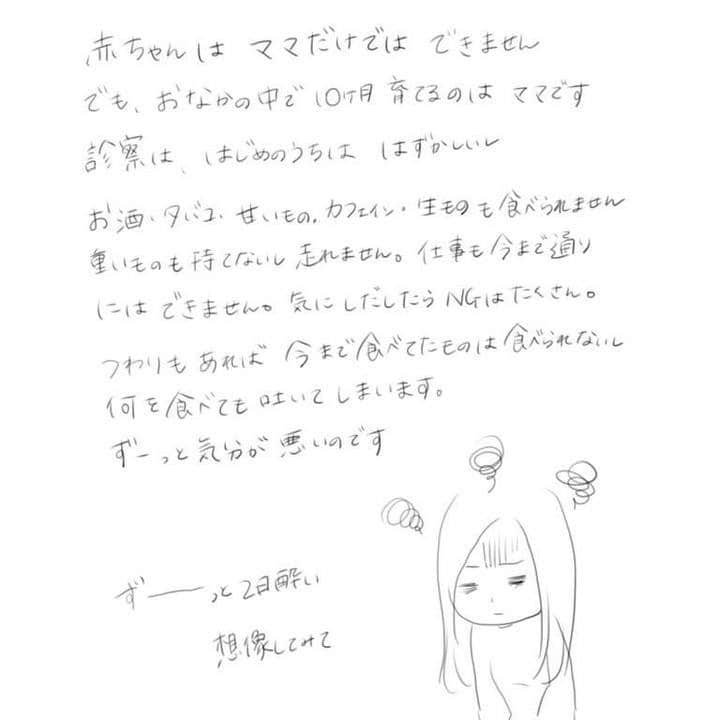 赤ちゃんは ママだけでは できません
でも、おなかの中で 10ヶ月 育てるのは ママです
診察は、はじめのうちは はずかしいし
お酒・タバコ・甘いもの、カフェイン・生ものも食べられません
重いものも持てないし 走れません。仕事も今まで通り
にはできません。気にしだしたらNGはたくさん。
つわりもあれば 今まで食べてたものは食べられないし
何を食べても吐いてしまいます。
ずーっと気分が悪いのです
ずーーっと2日酔い
想像してみて